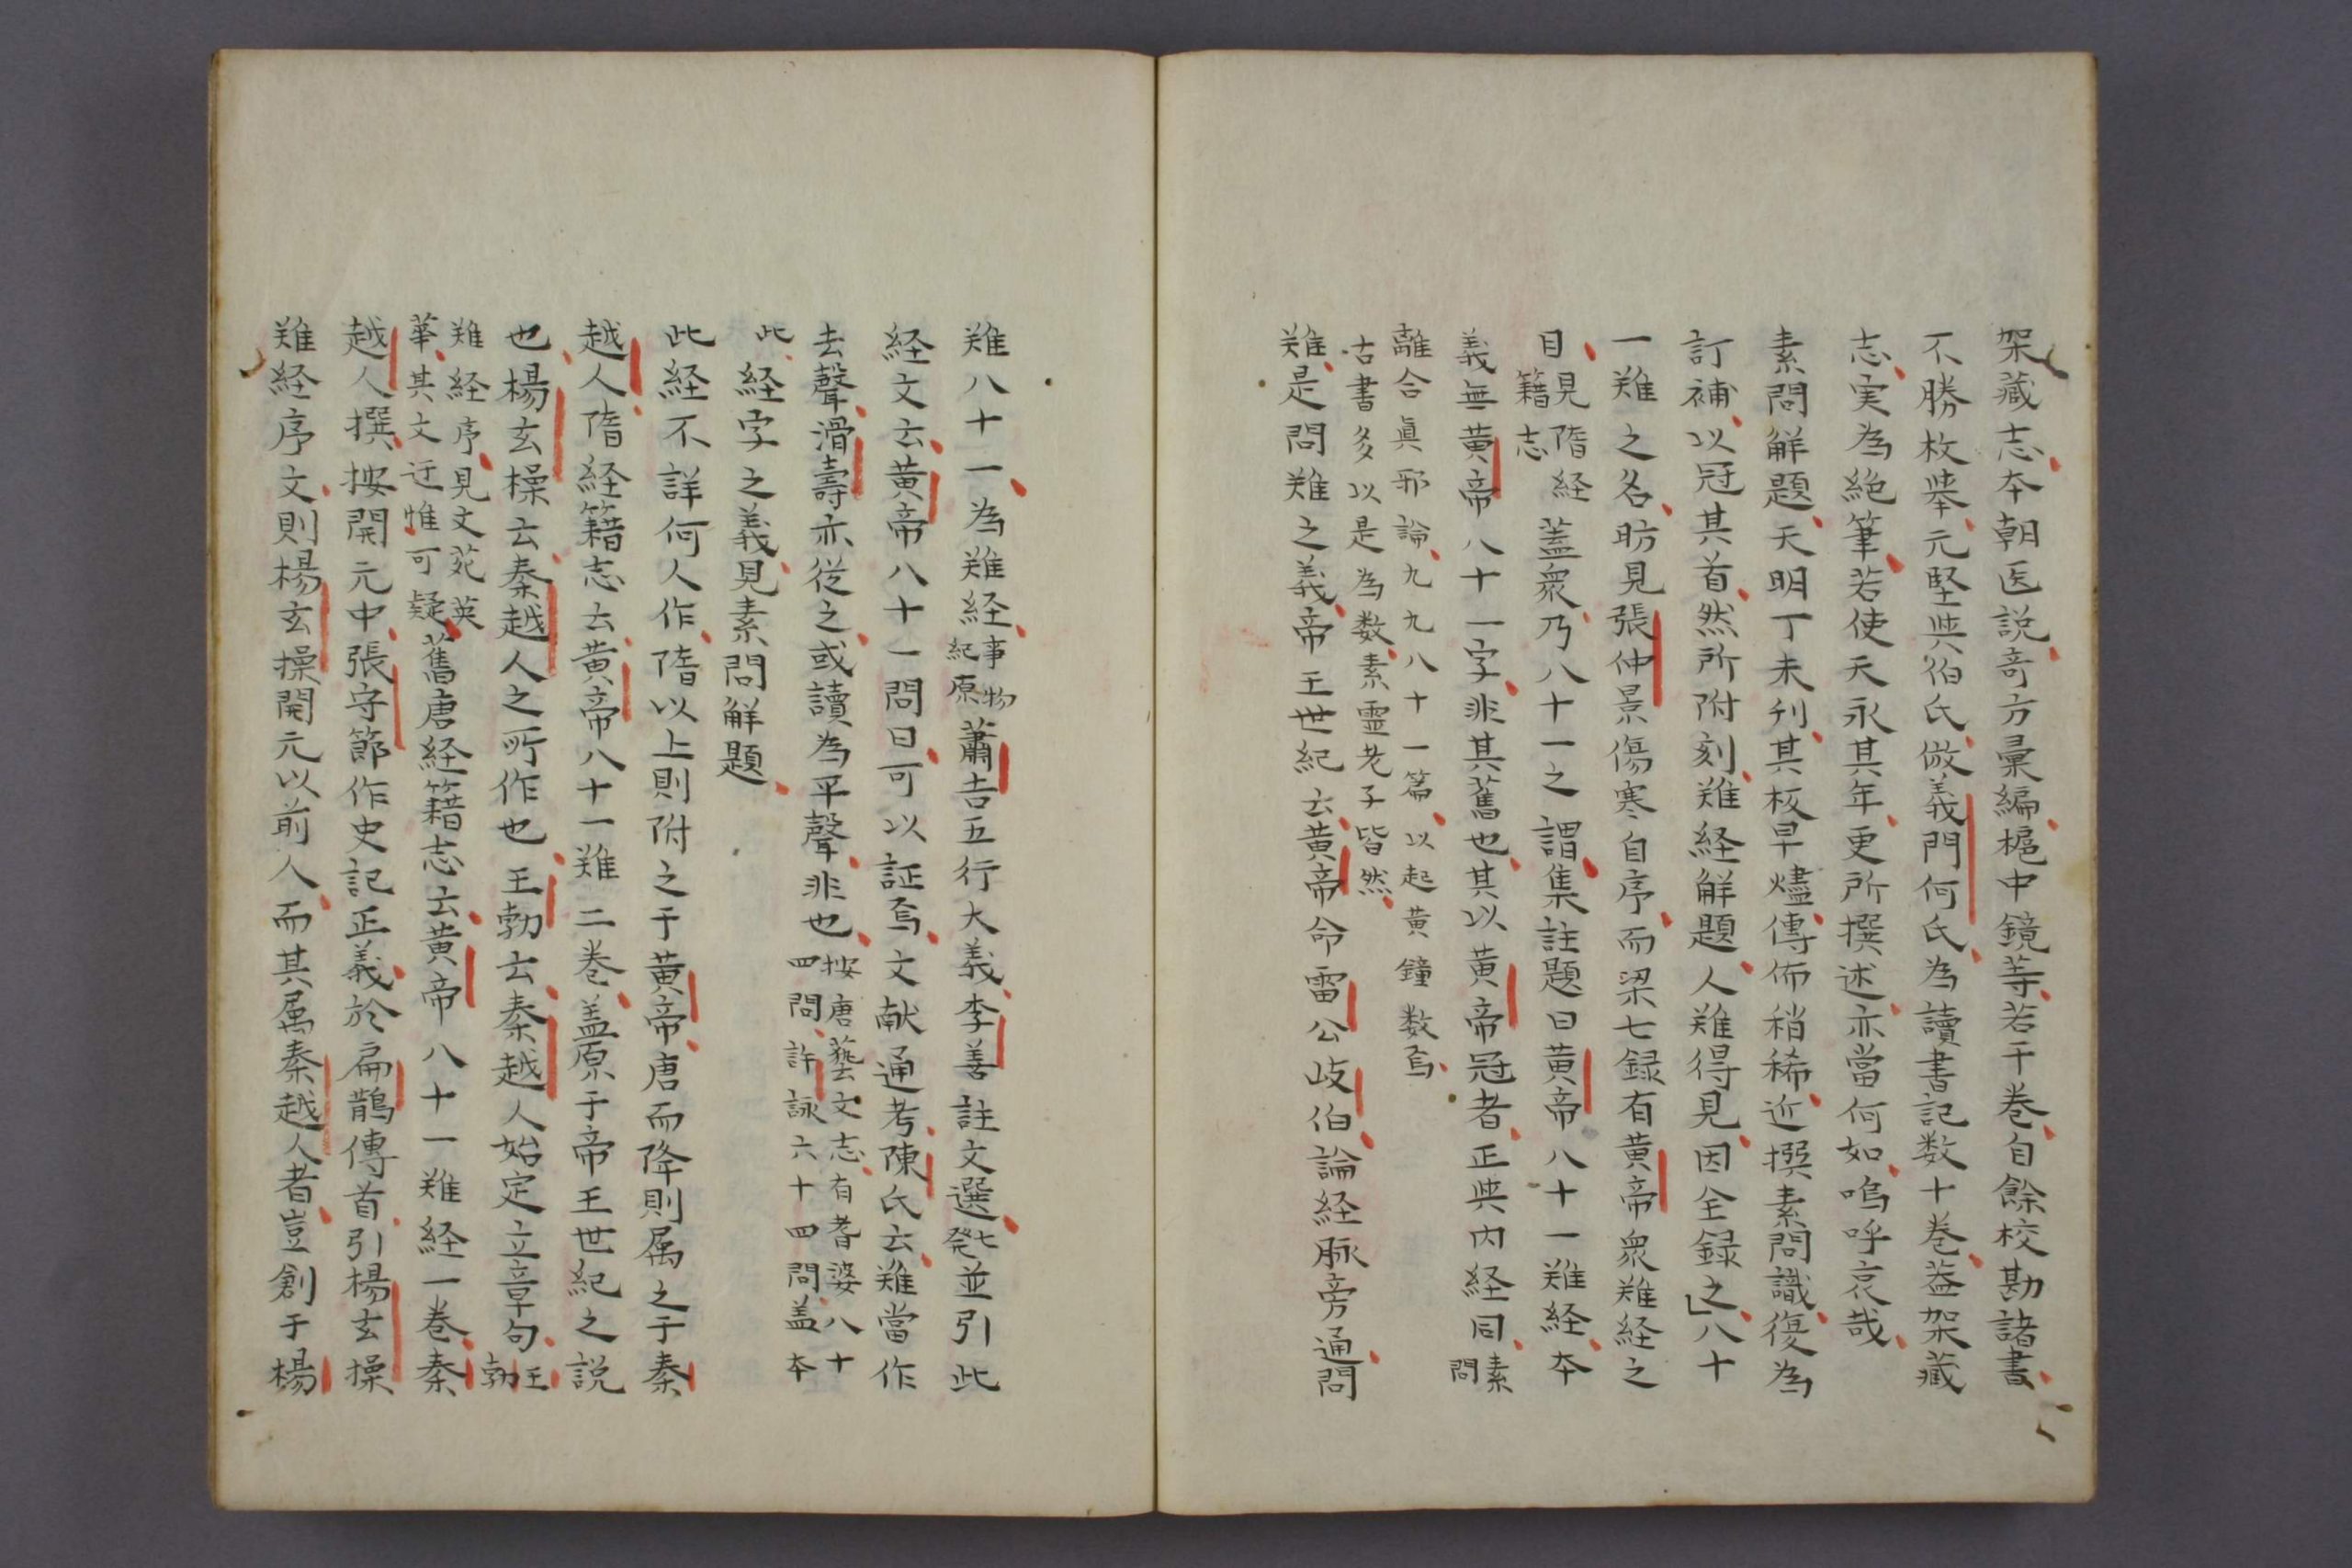 架藏志本朝医説奇方彙編椐中鏡等若干巻自餘校勘諸書
不勝枚挙元堅與伯氏倣義門何氏為讀書記数十巻葢架藏
志実為絶筆若使天永其年更所撰述亦當何如嗚呼哀哉
素問解題天明丁未刋其板早燼傳布稍稀近撰素問識復為
訂補以冠其首然所附刻難経解題人難得見因全録之」八十
一難之名昉見張仲景傷寒自序而梁七録有黄帝衆難経之
目見隋経籍志蓋衆乃八十一之謂集註題曰黄帝八十一難経本
義無黄帝八十一字非其舊也其以黄帝冠者正與内経同素問
離合眞邪論九九八十一篇以起黄鐘数焉
古書多以是為数素靈老子皆然
難是問難之義帝王世紀云黄帝命雷公歧伯論経脉旁通問
難八十一為難経事物紀原蕭吉五行大義李善註文選七発並引此
経文云黄帝八十一問曰可以証焉文献通考陳氏云難當作
去聲滑壽亦從之或讀為平聲非也按唐藝文志有耆婆八十四問許詠六十四問盖本
此
経字之義見素問解題
此経不詳何人作隋以上則附之于黄帝唐而降則属之于秦
越人隋経籍志云黄帝八十一難二巻盖原于帝王世紀之説
也楊玄操云秦越人之所作也王勃云秦越人始定立章句王勃
難経序見文苑英華其文迂惟可疑舊唐経籍志云黄帝八十一難経一巻秦
越人撰按開元中張守節作史記正義於扁鵲傳首引楊玄操
難経序文則楊玄操開元以前人而其属秦越人者豈創于楊